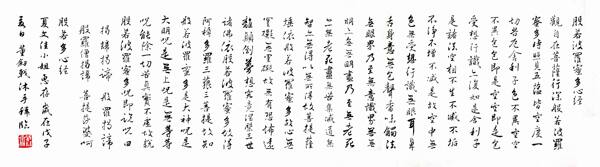 般若波羅蜜多心經
觀自在菩薩行深般若波羅
蜜多時照見五蘊皆空度一
切苦厄舍利子色不異空空
不異色色即是空空即是色
受想行識亦復如是舍利子
是諸法空相不生不滅不垢
不淨不增不減是故空中無
色無受想行識無眼耳鼻
舌身意無色聲香味觸法
無眼界乃至無意識界無無
明亦無無明盡乃至無老死
亦無老死盡無苦集滅道無
智亦無得以無所得故菩提薩
埵依般若波羅蜜多故心無
罣礙無罣礙故無有恐怖遠
離顛倒夢想究竟涅槃三世
諸佛依般若波羅蜜多故得
阿耨多羅三藐三菩提故知
般若波羅蜜多是大神咒是
大明咒是無上咒是無等等
咒能除一切苦真實不虛故說
般若波羅蜜多咒即說咒曰
揭諦揭諦 般羅揭諦
般羅僧揭諦 菩提莎婆呵
般若多心經
小姐惠存 歲在戊子
夏日 沐手